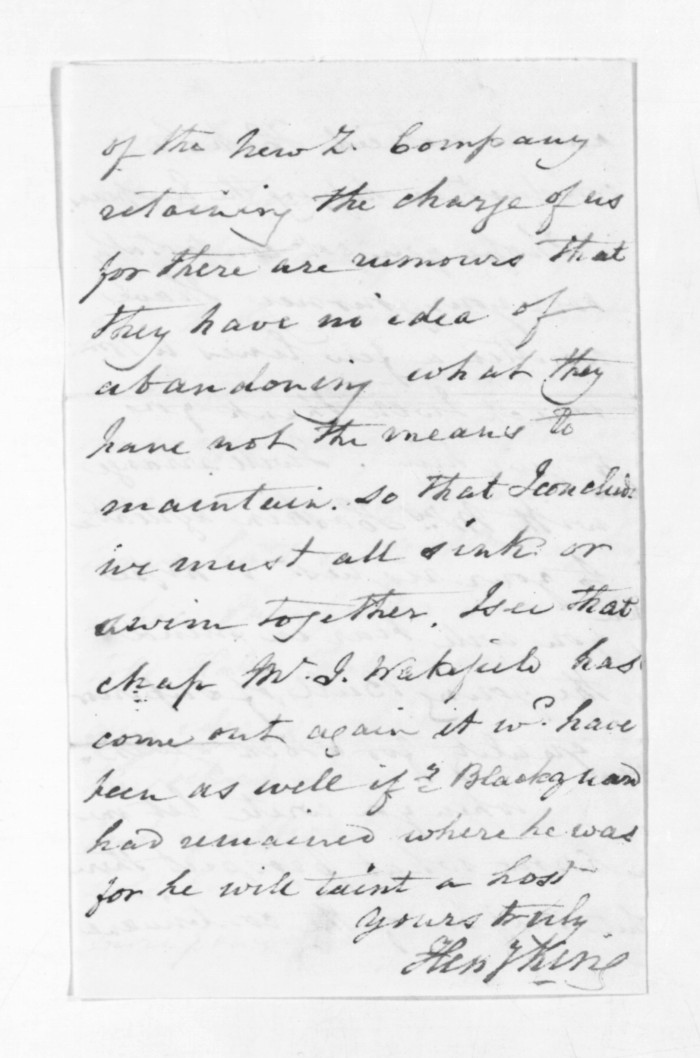 of the New Z. Company
retaining the charge of us
for there are rumours that
they have no idea of
abandoning what they
have not the means to
maintain. so that I conclude
we must all sink or
swim together. I see that
chap Mr. J. Wakefield has
come out again it wd. have
been as well if ye Blackguard
had remained where he was
for he will taint a host
yours truly
Hen y King